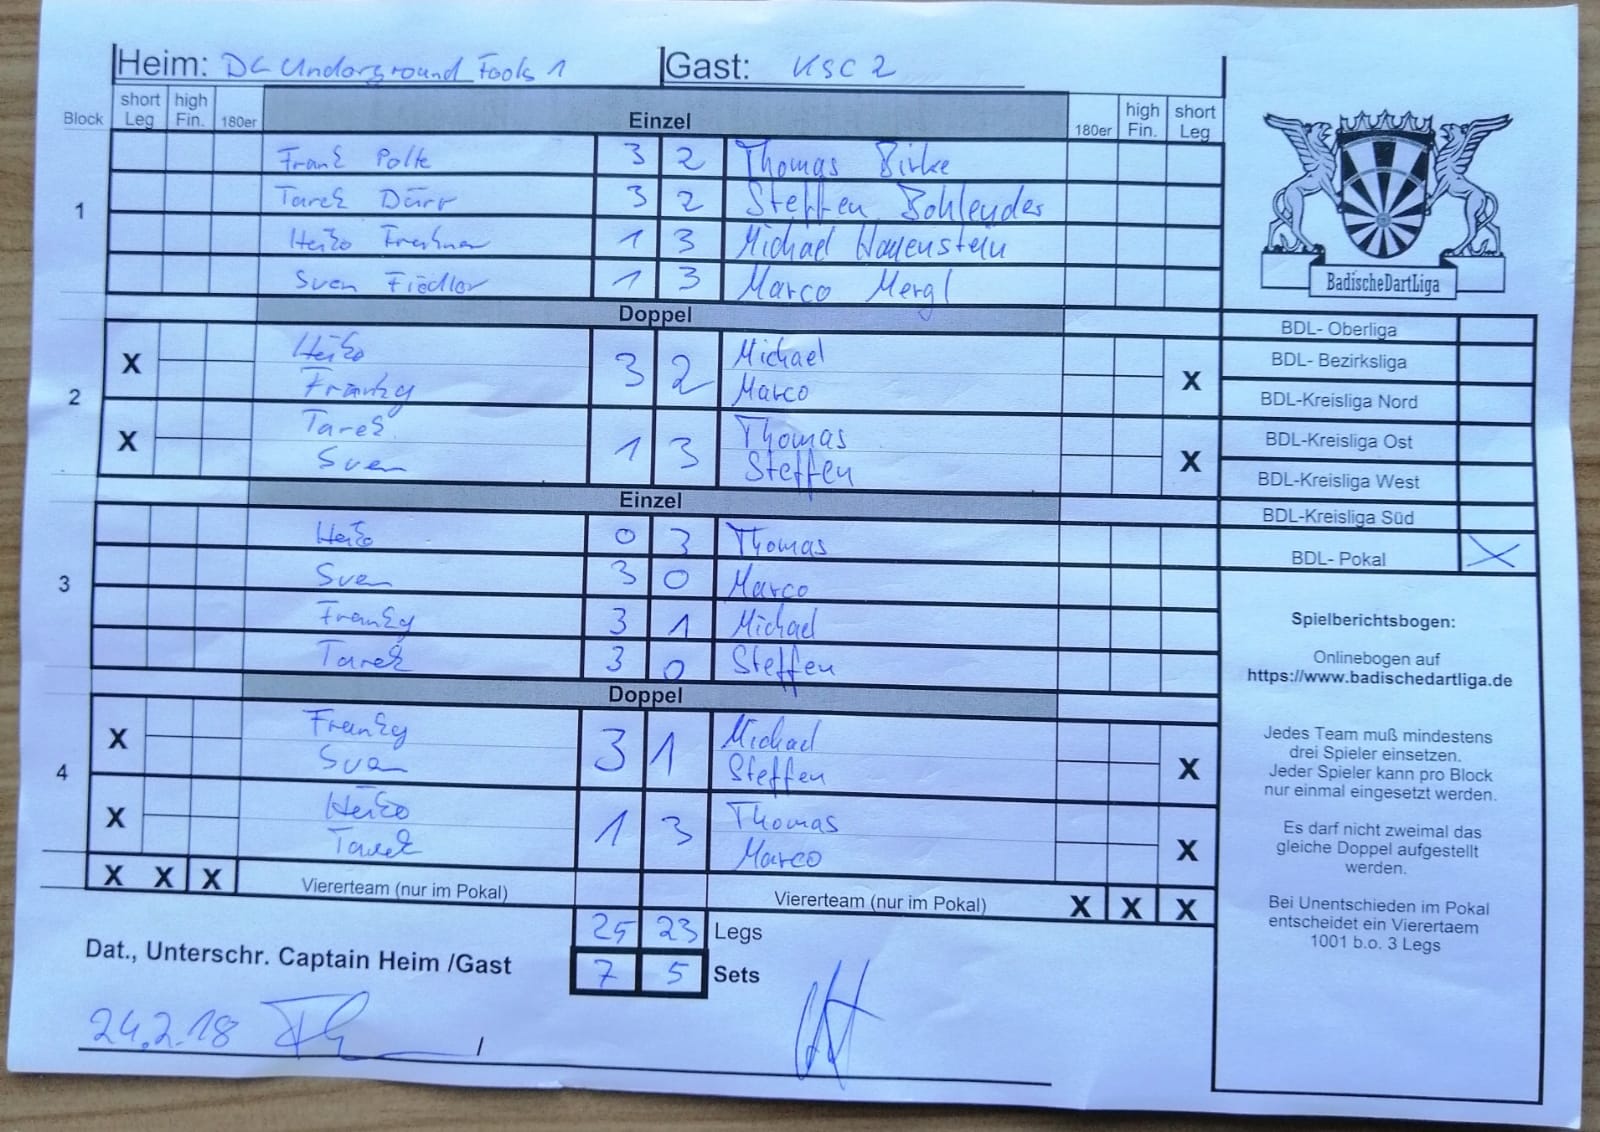 Heim: DC Underground Fools 1 Gast: KSC 2
Block short Leg high Fin. 180er Einzel 180er high Fin. short Leg
1
Frank Polk 3 2 Thomas Birke
Tarek Dürr 3 2 Steffen Bohlender
Heiko 1 3 Michael
Sven Fiedler 1 3 Marco Mergl
BadischeDartLiga
Doppel
2
X Heiko 3 2 Michael X
Franky Marco
X Tarek 1 3 Thomas X
Sven Steffen
Einzel
3
Heiko 0 3 Thomas
Sven 3 0 Marco
Franky 3 1 Michael
Tarek 3 0 Steffen
Doppel
4
X Franky 3 1 Michael X
Sven Steffen
X Heiko 1 3 Thomas X
Tarek Marco
X X X Viererteam (nur im Pokal) Viererteam (nur im Pokal) X X X
25 23 Legs
Dat., Unterschr. Captain Heim /Gast 7 5 Sets
24.2.18 /
BDL- Oberliga
BDL- Bezirksliga
BDL-Kreisliga Nord
BDL-Kreisliga Ost
BDL-Kreisliga West
BDL-Kreisliga Süd
BDL- Pokal X
Spielberichtsbogen:
Onlinebogen auf
https://www.badischedartliga.de
Jedes Team muß mindestens
drei Spieler einsetzen.
Jeder Spieler kann pro Block
nur einmal eingesetzt werden.
Es darf nicht zweimal das
gleiche Doppel aufgestellt
werden.
Bei Unentschieden im Pokal
entscheidet ein Vierertaem
1001 b.o. 3 Legs